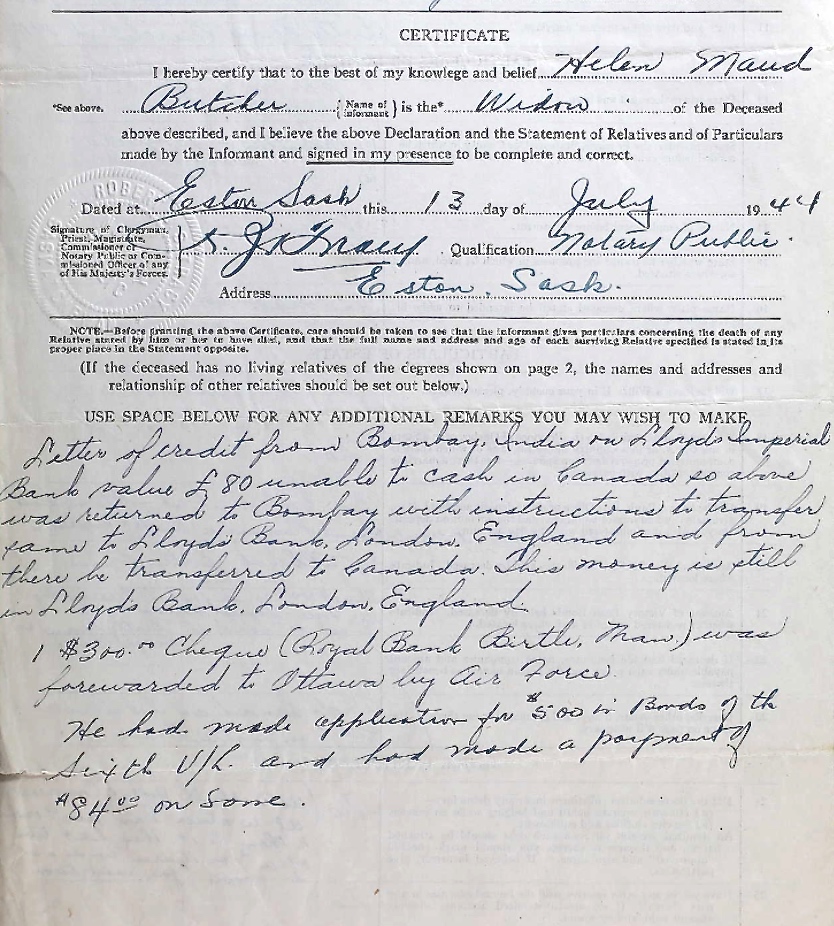 CERTIFICATE
I hereby certify that to the best of my knowlege and belief Helen Maud
*See above. Butcher { Name of Informant } is the* Widow of the Deceased
above described, and I believe the above Declaration and the Statement of Relatives and of Particulars
made by the Informant and signed in my presence to be complete and correct.
Dated at Eston Sask this 13 day of July 1944
Signature of Clergyman,
Priest, Magistrate,
Commissioner or
Notary Public or Com-
missioned Officer of any
of His Majesty's Forces.
Qualification Notary Public.
Address Eston, Sask.
NOTE.—Before granting the above Certificate, care should be taken to see that the informant gives particulars concerning the death of any
Relative stated by him or her to have died, and that the full name and address and age of each surviving Relative specified is stated in its
proper place in the Statement opposite.
(If the deceased has no living relatives of the degrees shown on page 2, the names and addresses and
relationship of other relatives should be set out below.)
USE SPACE BELOW FOR ANY ADDITIONAL REMARKS YOU MAY WISH TO MAKE
Letter of credit from Bombay, India on Lloyds Imperial
Bank value £80 unable to cash in Canada so above
was returned to Bombay with instructions to transfer
same to Lloyds Bank, London, England and from
there be transferred to Canada. This money is still
in Lloyds Bank, London, England.
1 $300.00 Cheque (Royal Bank Birtle, Man.) was
forewarded to Ottawa by Air Force.
He had made application for $500 in Bonds of the
Sixth V/L. and had made a payment of
$84.00 on same.
ROBER